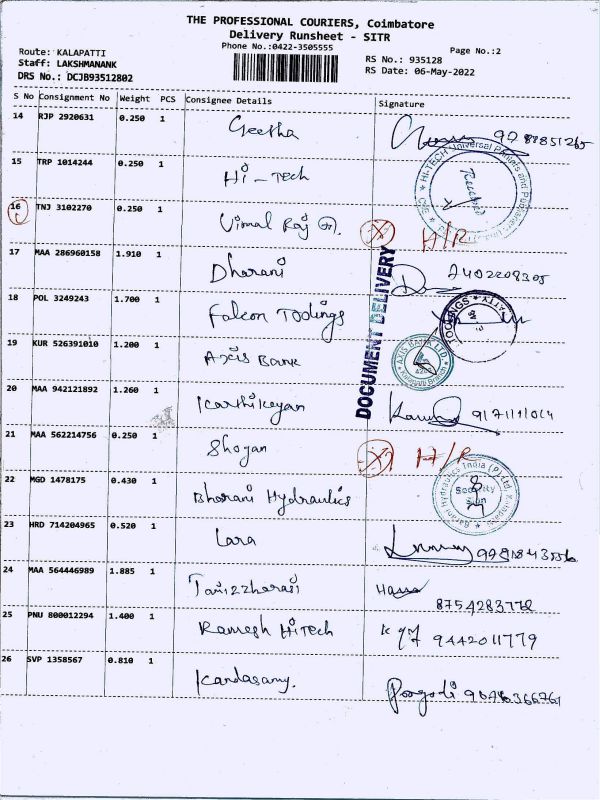 THE PROFESSIONAL COURIERS, Coimbatore
Delivery Runsheet - SITR
Phone No.:0422-3505555
Page No.:2
Route: KALAPATTI
Staff: LAKSHMANANK
DRS No.: DCJB93512802
RS No.: 935128
RS Date: 06-May-2022
S No Consignment No Weight PCS Consignee Details Signature
14 RJP 2920631 0.250 1 Geetha
15 TRP 1014244 0.250 1 Hi-Tech
Received
16 TNJ 3102270 0.250 1 Vimal Raj G. X H/R
17 MAA 286960158 1.910 1 Dharani 7402208305
DOCUMENT DELIVERY
18 POL 3249243 1.700 1 Falcon Toolings
19 KUR 526391010 1.200 1 Axis Bank
AXIS BANK LTD.
20 MAA 942121892 1.260 1 Karthikeyan
21 MAA 562214756 0.250 1 Shoyan X H/R
22 MGD 1478175 0.430 1 Bharani Hydraulics
Security
Sign
23 HRD 714204965 0.520 1 Lara
24 MAA 564446989 1.885 1 Tamizzharasi
8754283778
25 PNU 800012294 1.400 1 Ramesh HiTech 9442011779
26 SVP 1358567 0.810 1 Kandasamy.